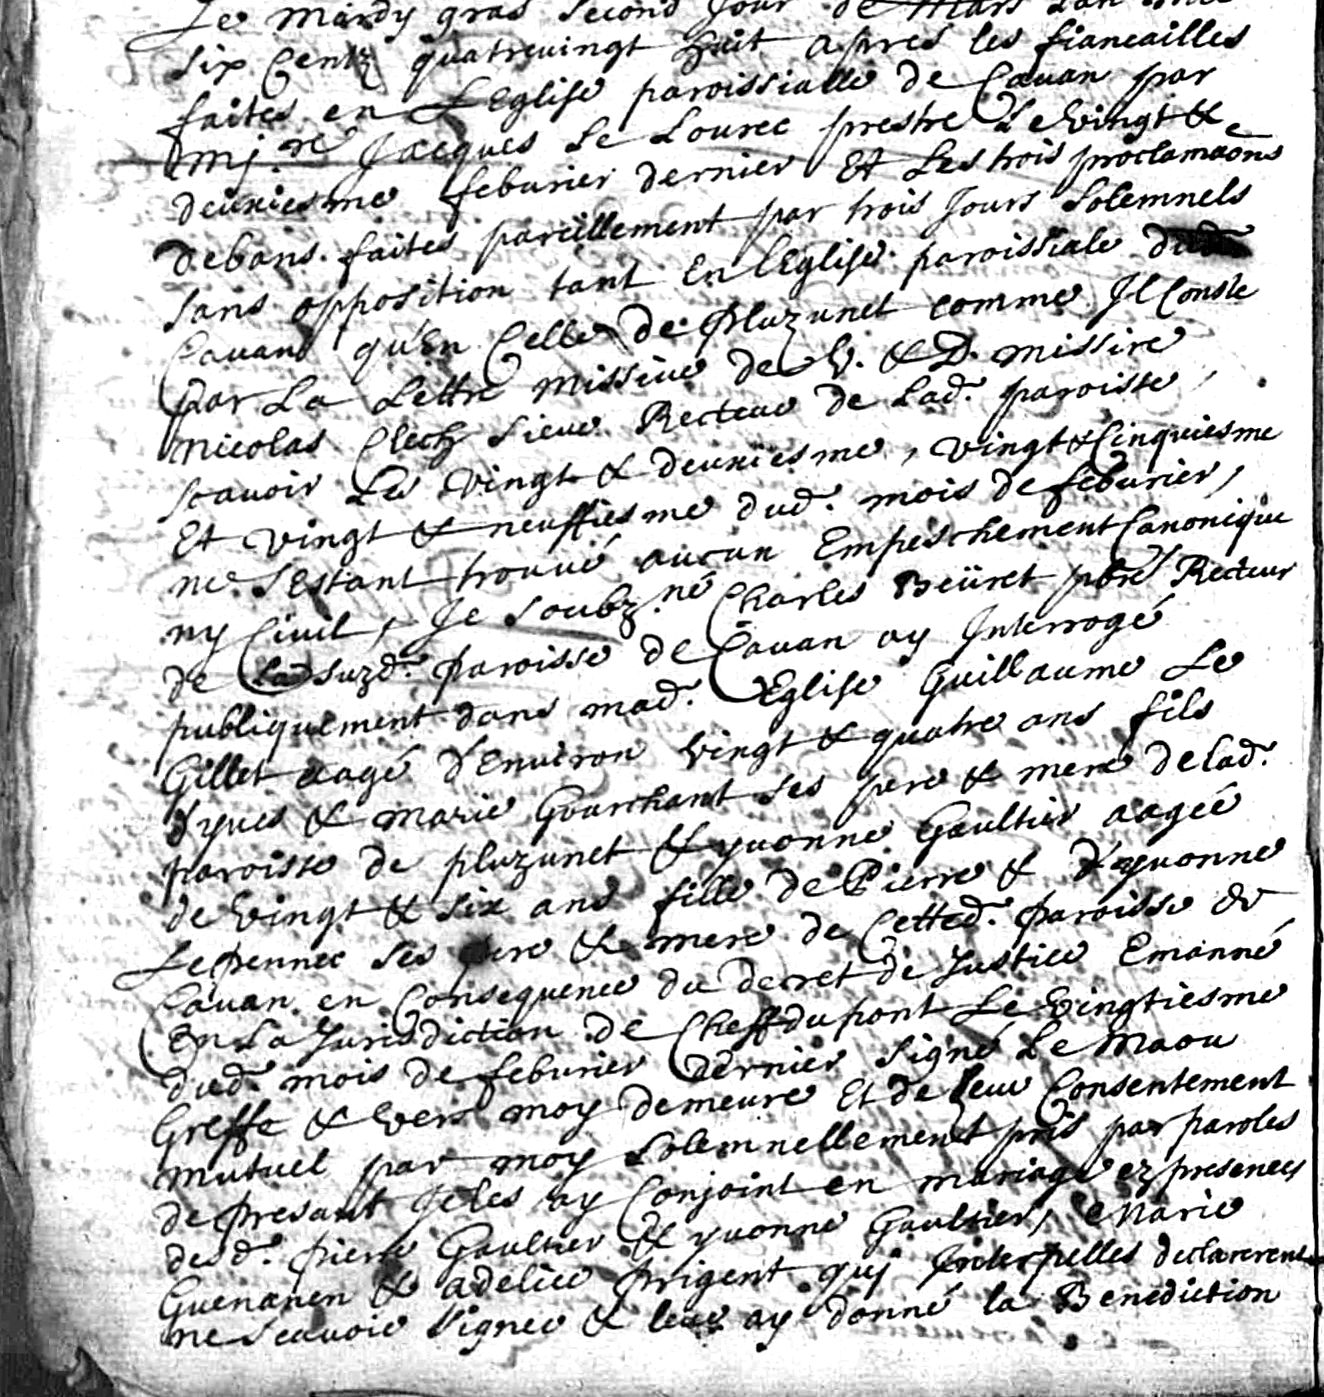 Le mardy gras second Jour de Mars Lan mil
six Centz quatrevingt huit apres les fiancailles
faites en LEglise paroissialle de Cavan par
mi.re Jacques Le Lourec prestre Le vingt &
deuxiesme feburier dernier Et Les trois proclamaons
debans faites pareillement par trois Jours Solemnels
sans opposition tant En lEglise paroissiale dud.
Cavan qu'En Celle de pluzunet comme Il Conste
par La Lettre missive de V. & D. missire
Nicolas Clech sieur Recteur de Lad. paroisse,
scavoir Les vingt & deuxiesme, vingt & Cinquiesme
Et vingt & neuffiesme dud. mois de feburier,
ne sEstant trouvé aucun Empeschement Canonique
ny Civil, Je soubz.né Charles Beüret pbre Recteur
de Lad suzd. paroisse de Cavan ay Interrogé
publiquement dans mad. Eglise Guillaume Le
Gillet aagé d'Environ vingt & quatre ans fils
d'yves & marie Gourhant ses pere & mere de lad.
paroisse de pluzunet & yvonne Gaultier aagée
de vingt & six ans fille de Pierre & d'yvonne
Le pennec ses pere & mere de Cetted. paroisse de
Cavan en Consequence du decret de Justice Emanné
En La Jurisdiction de Cheffdupont Le vingtiesme
dud. mois de feburier dernier signé Le Maou
Greffe & vers moy demeure Et de leur Consentement
mutuel par moy solemnellement pris par paroles
de presant Je les ay Conjoint en mariage ez presences
desd. pierre Gaultier & yvonne Gaultier, Marie
Guenanen & adelice prigent qui Interpelles declarerent
ne scavoir signer & leur ay donné la Benediction